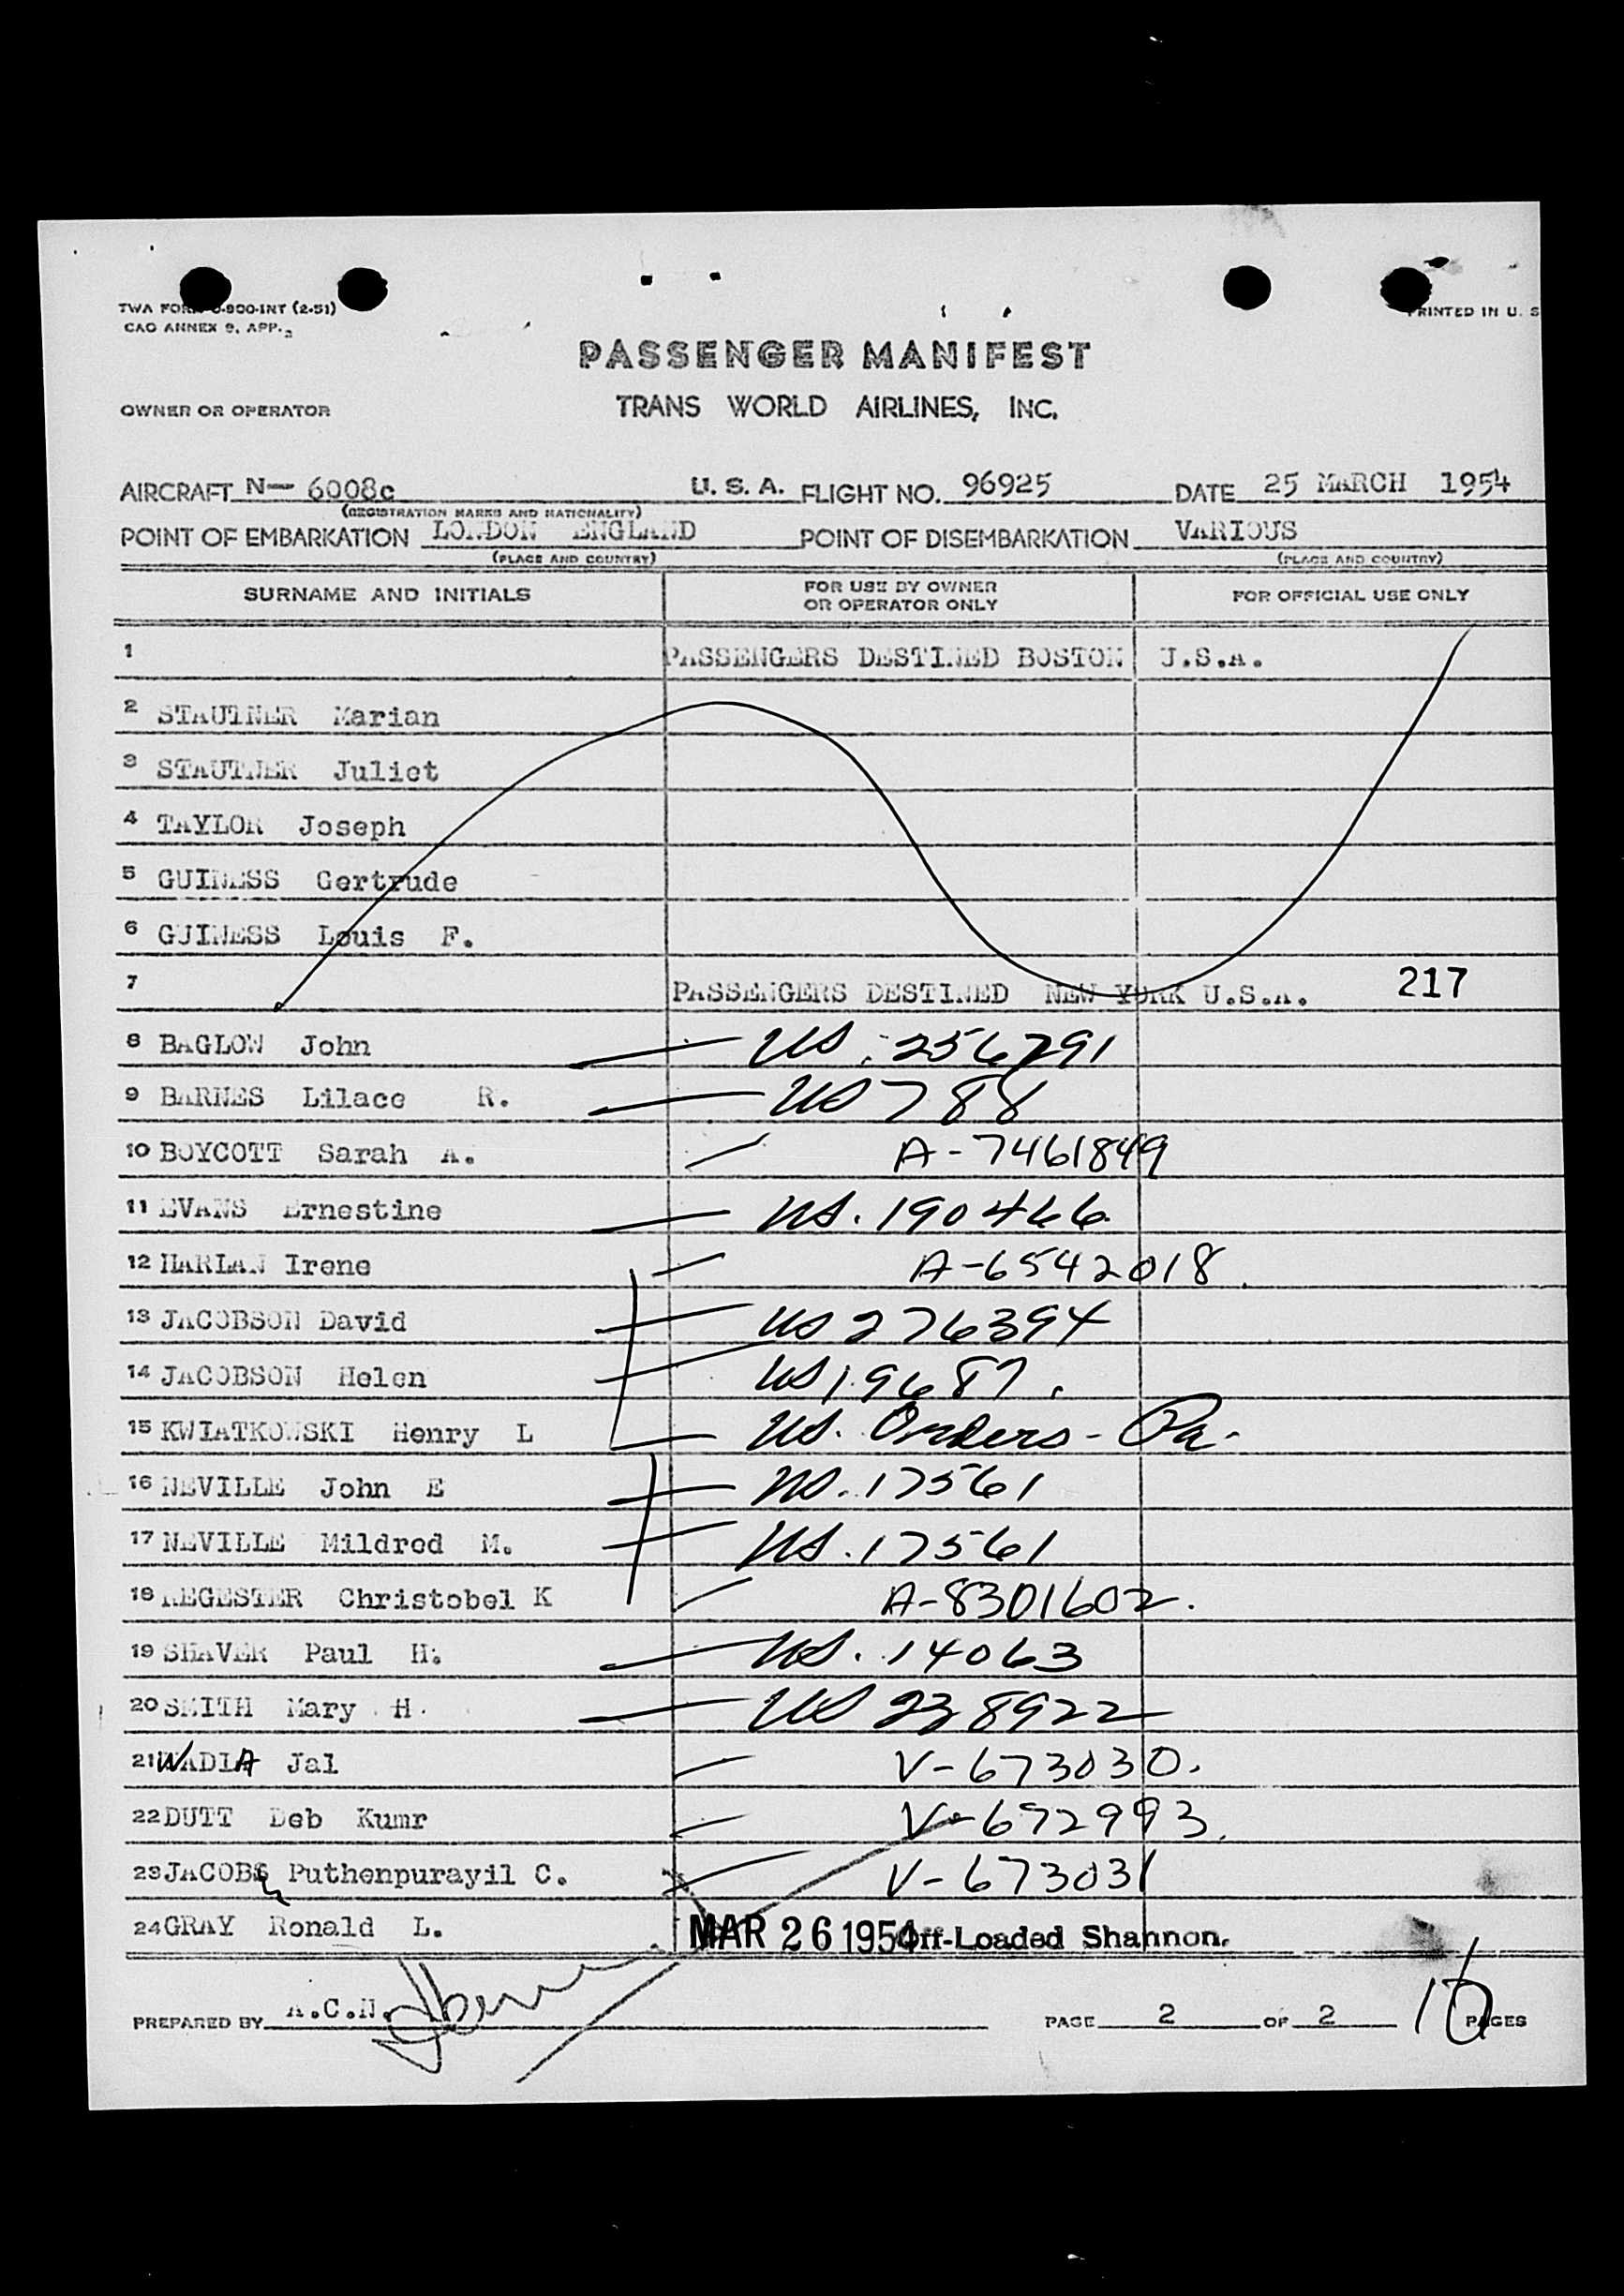 TWA FORM 0-900-INT (2-51)
CAO ANNEX 9, APP. 2
PRINTED IN U. S
PASSENGER MANIFEST
OWNER OR OPERATOR TRANS WORLD AIRLINES, INC.
AIRCRAFT N— 6008c U. S. A. FLIGHT NO. 96925 DATE 25 MARCH 1954
(REGISTRATION MARKS AND NATIONALITY)
POINT OF EMBARKATION LONDON ENGLAND POINT OF DISEMBARKATION VARIOUS
(PLACE AND COUNTRY) (PLACE AND COUNTRY)
SURNAME AND INITIALS FOR USE BY OWNER OR OPERATOR ONLY FOR OFFICIAL USE ONLY
1 PASSENGERS DESTINED BOSTON U.S.A.
2 STAUTNER Marian
3 STAUTNER Juliet
4 TAYLOR Joseph
5 GUINESS Gertrude
6 GUINESS Louis F.
7 PASSENGERS DESTINED NEW YORK U.S.A. 217
8 BAGLOW John — US. 256791
9 BARNES Lilace R. — US 788
10 BOYCOTT Sarah A. A-7461849
11 EVANS Ernestine — US. 190466
12 HARLAN Irene A-6542018.
13 JACOBSON David — US 276394
14 JACOBSON Helen — US 19687.
15 KWIATKOWSKI Henry L — US. Orders - Pa.
16 NEVILLE John E — US. 17561
17 NEVILLE Mildred M. — US. 17561
18 REGESTER Christobel K A-8301602.
19 SHAVER Paul H. — US. 14063
20 SMITH Mary H. — US 238922
21 WADIA Jal V-673030.
22 DUTT Deb Kumr V-672993.
23 JACOBS Puthenpurayil C. V-673031
24 GRAY Ronald L. MAR 26 1954 Off-Loaded Shannon.
PREPARED BY A.C.N. PAGE 2 OF 2 PAGES 16